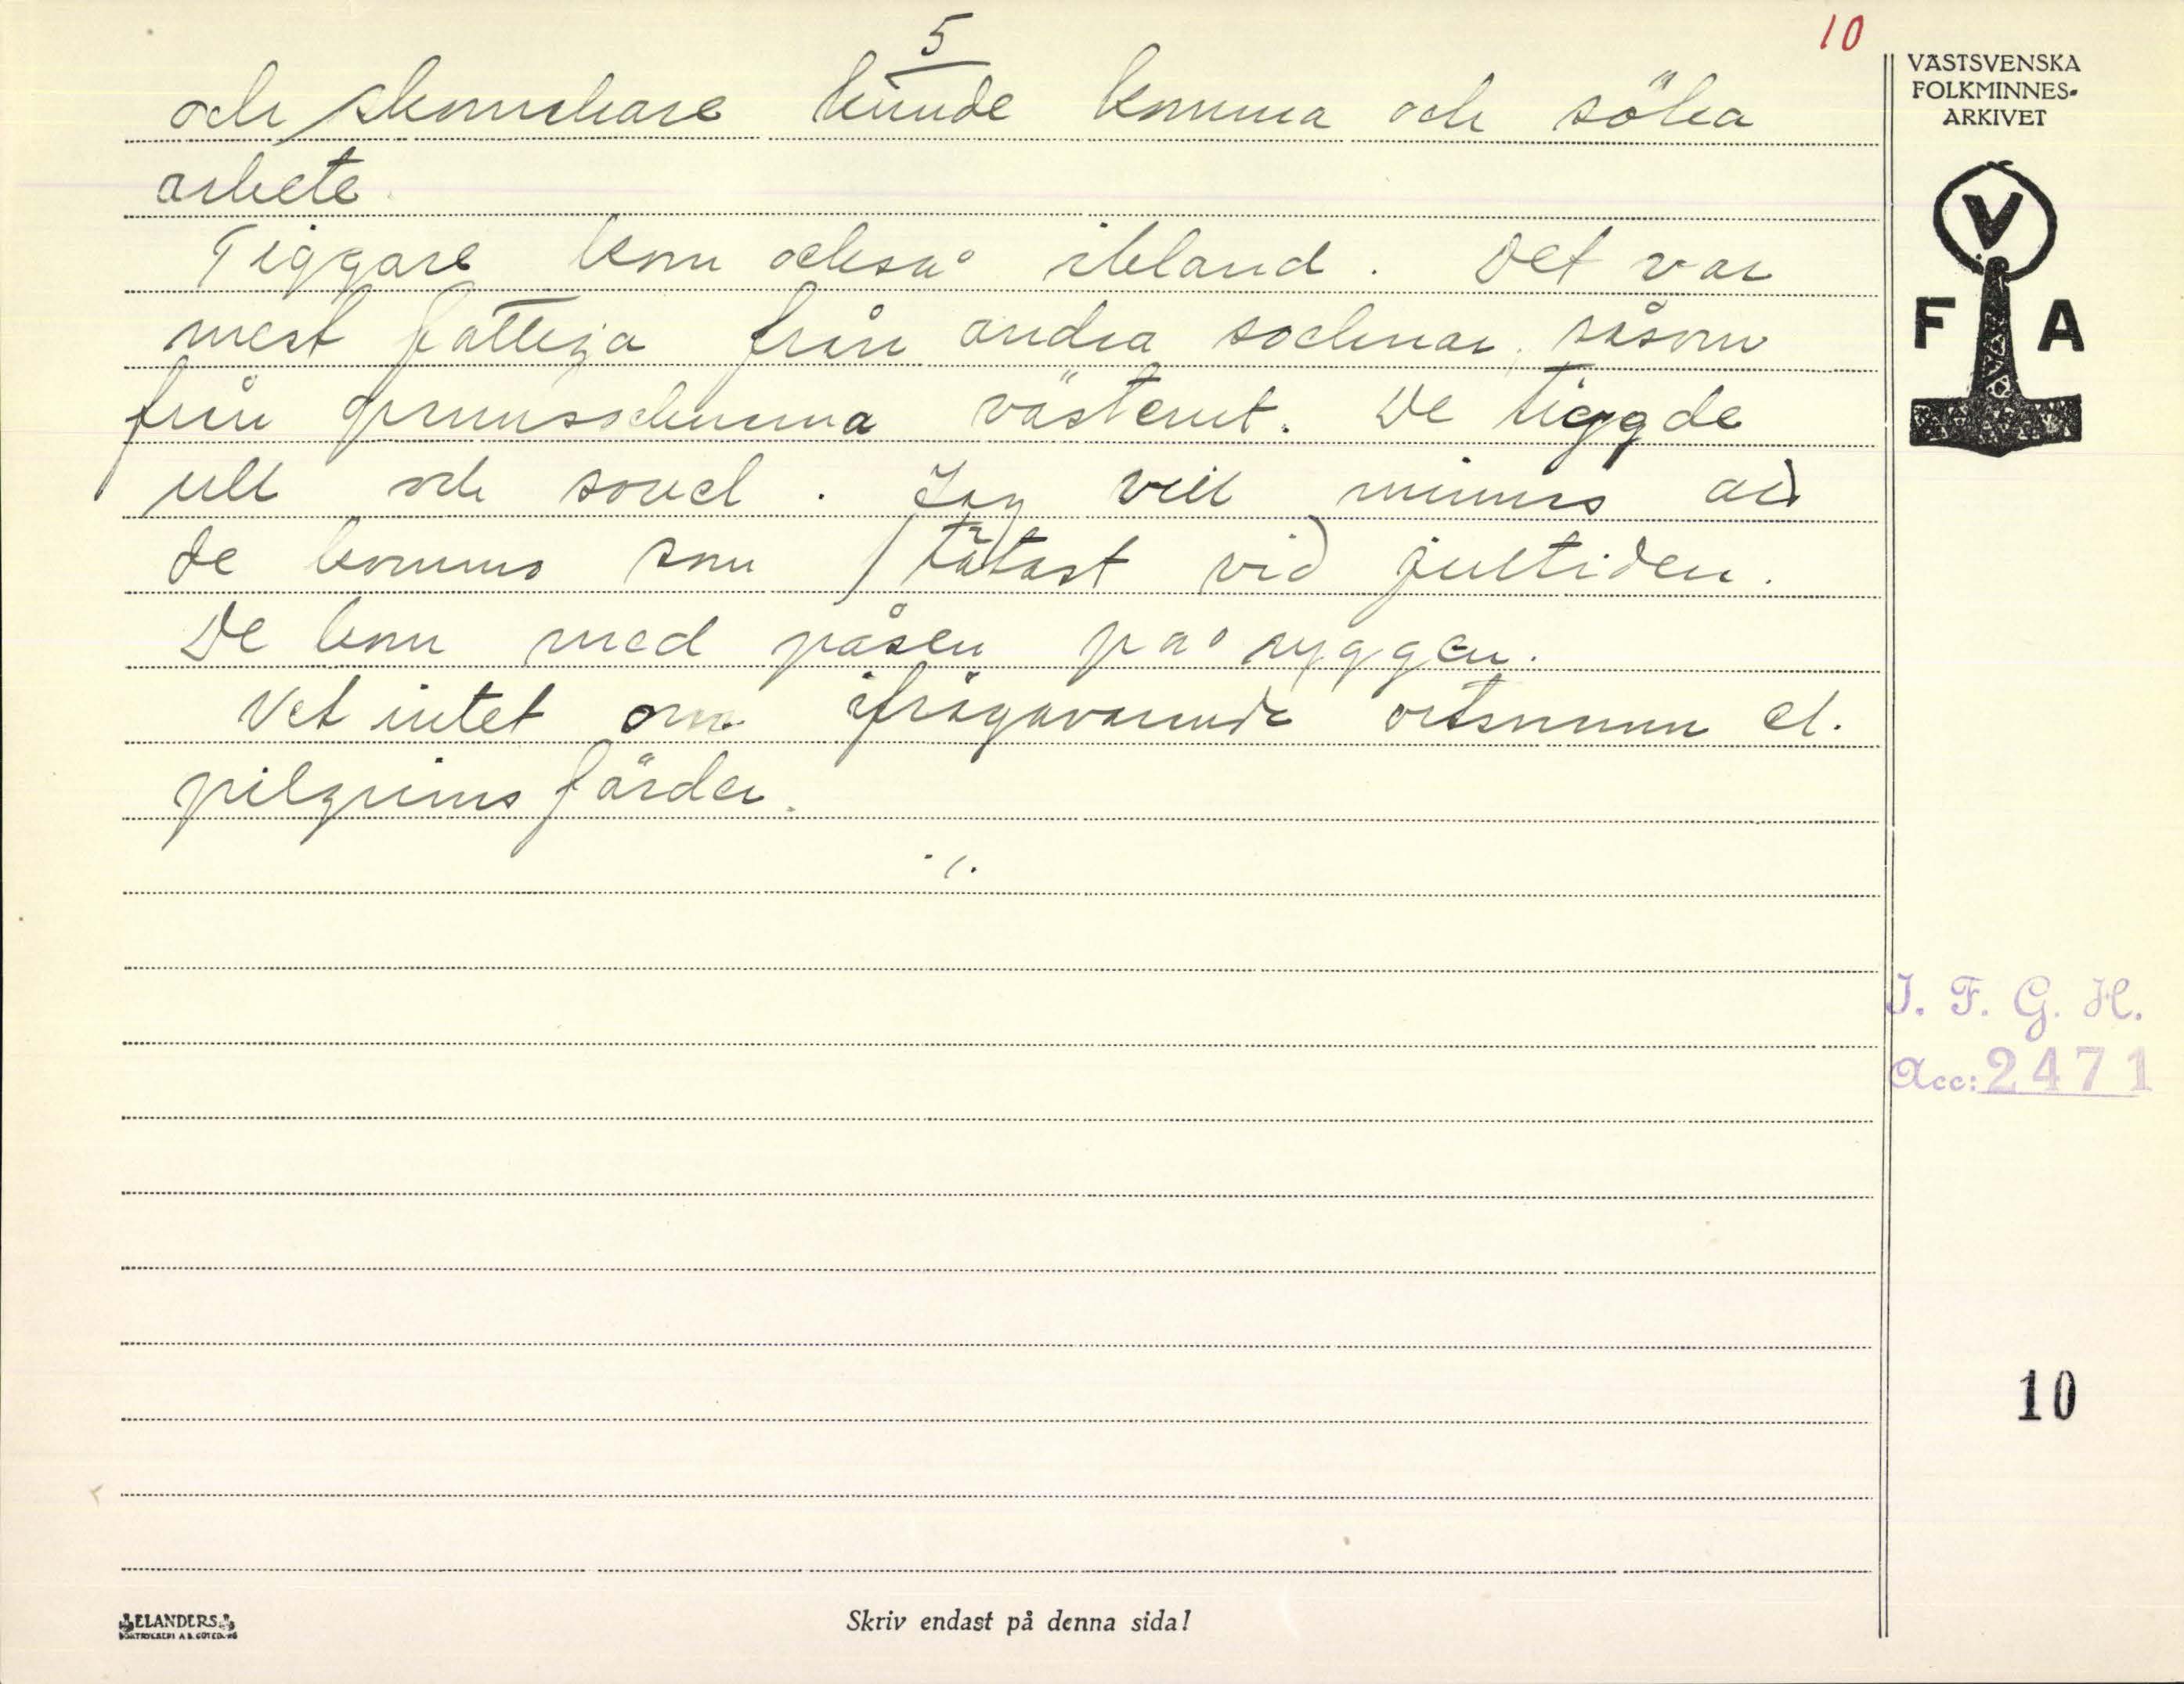 5
10
och skomakare kunde komma och söka
arbete.
Tiggare kom också ibland. Det var
mest fattiga från andra socknar, såsom
från grannsocknarna västerut. De tiggde
ull och sovel. Jag vill minnas att
de kommo som tätast vid jultiden.
De kom med påsen på ryggen.
Vet intet om ifrågavarande ortsnamn el.
pilgrimsfärder.
./.
VÄSTSVENSKA
FOLKMINNES-
ARKIVET
V
F A
I. F. G. H.
Acc: 2471
10
ELANDERS
Skriv endast på denna sida!